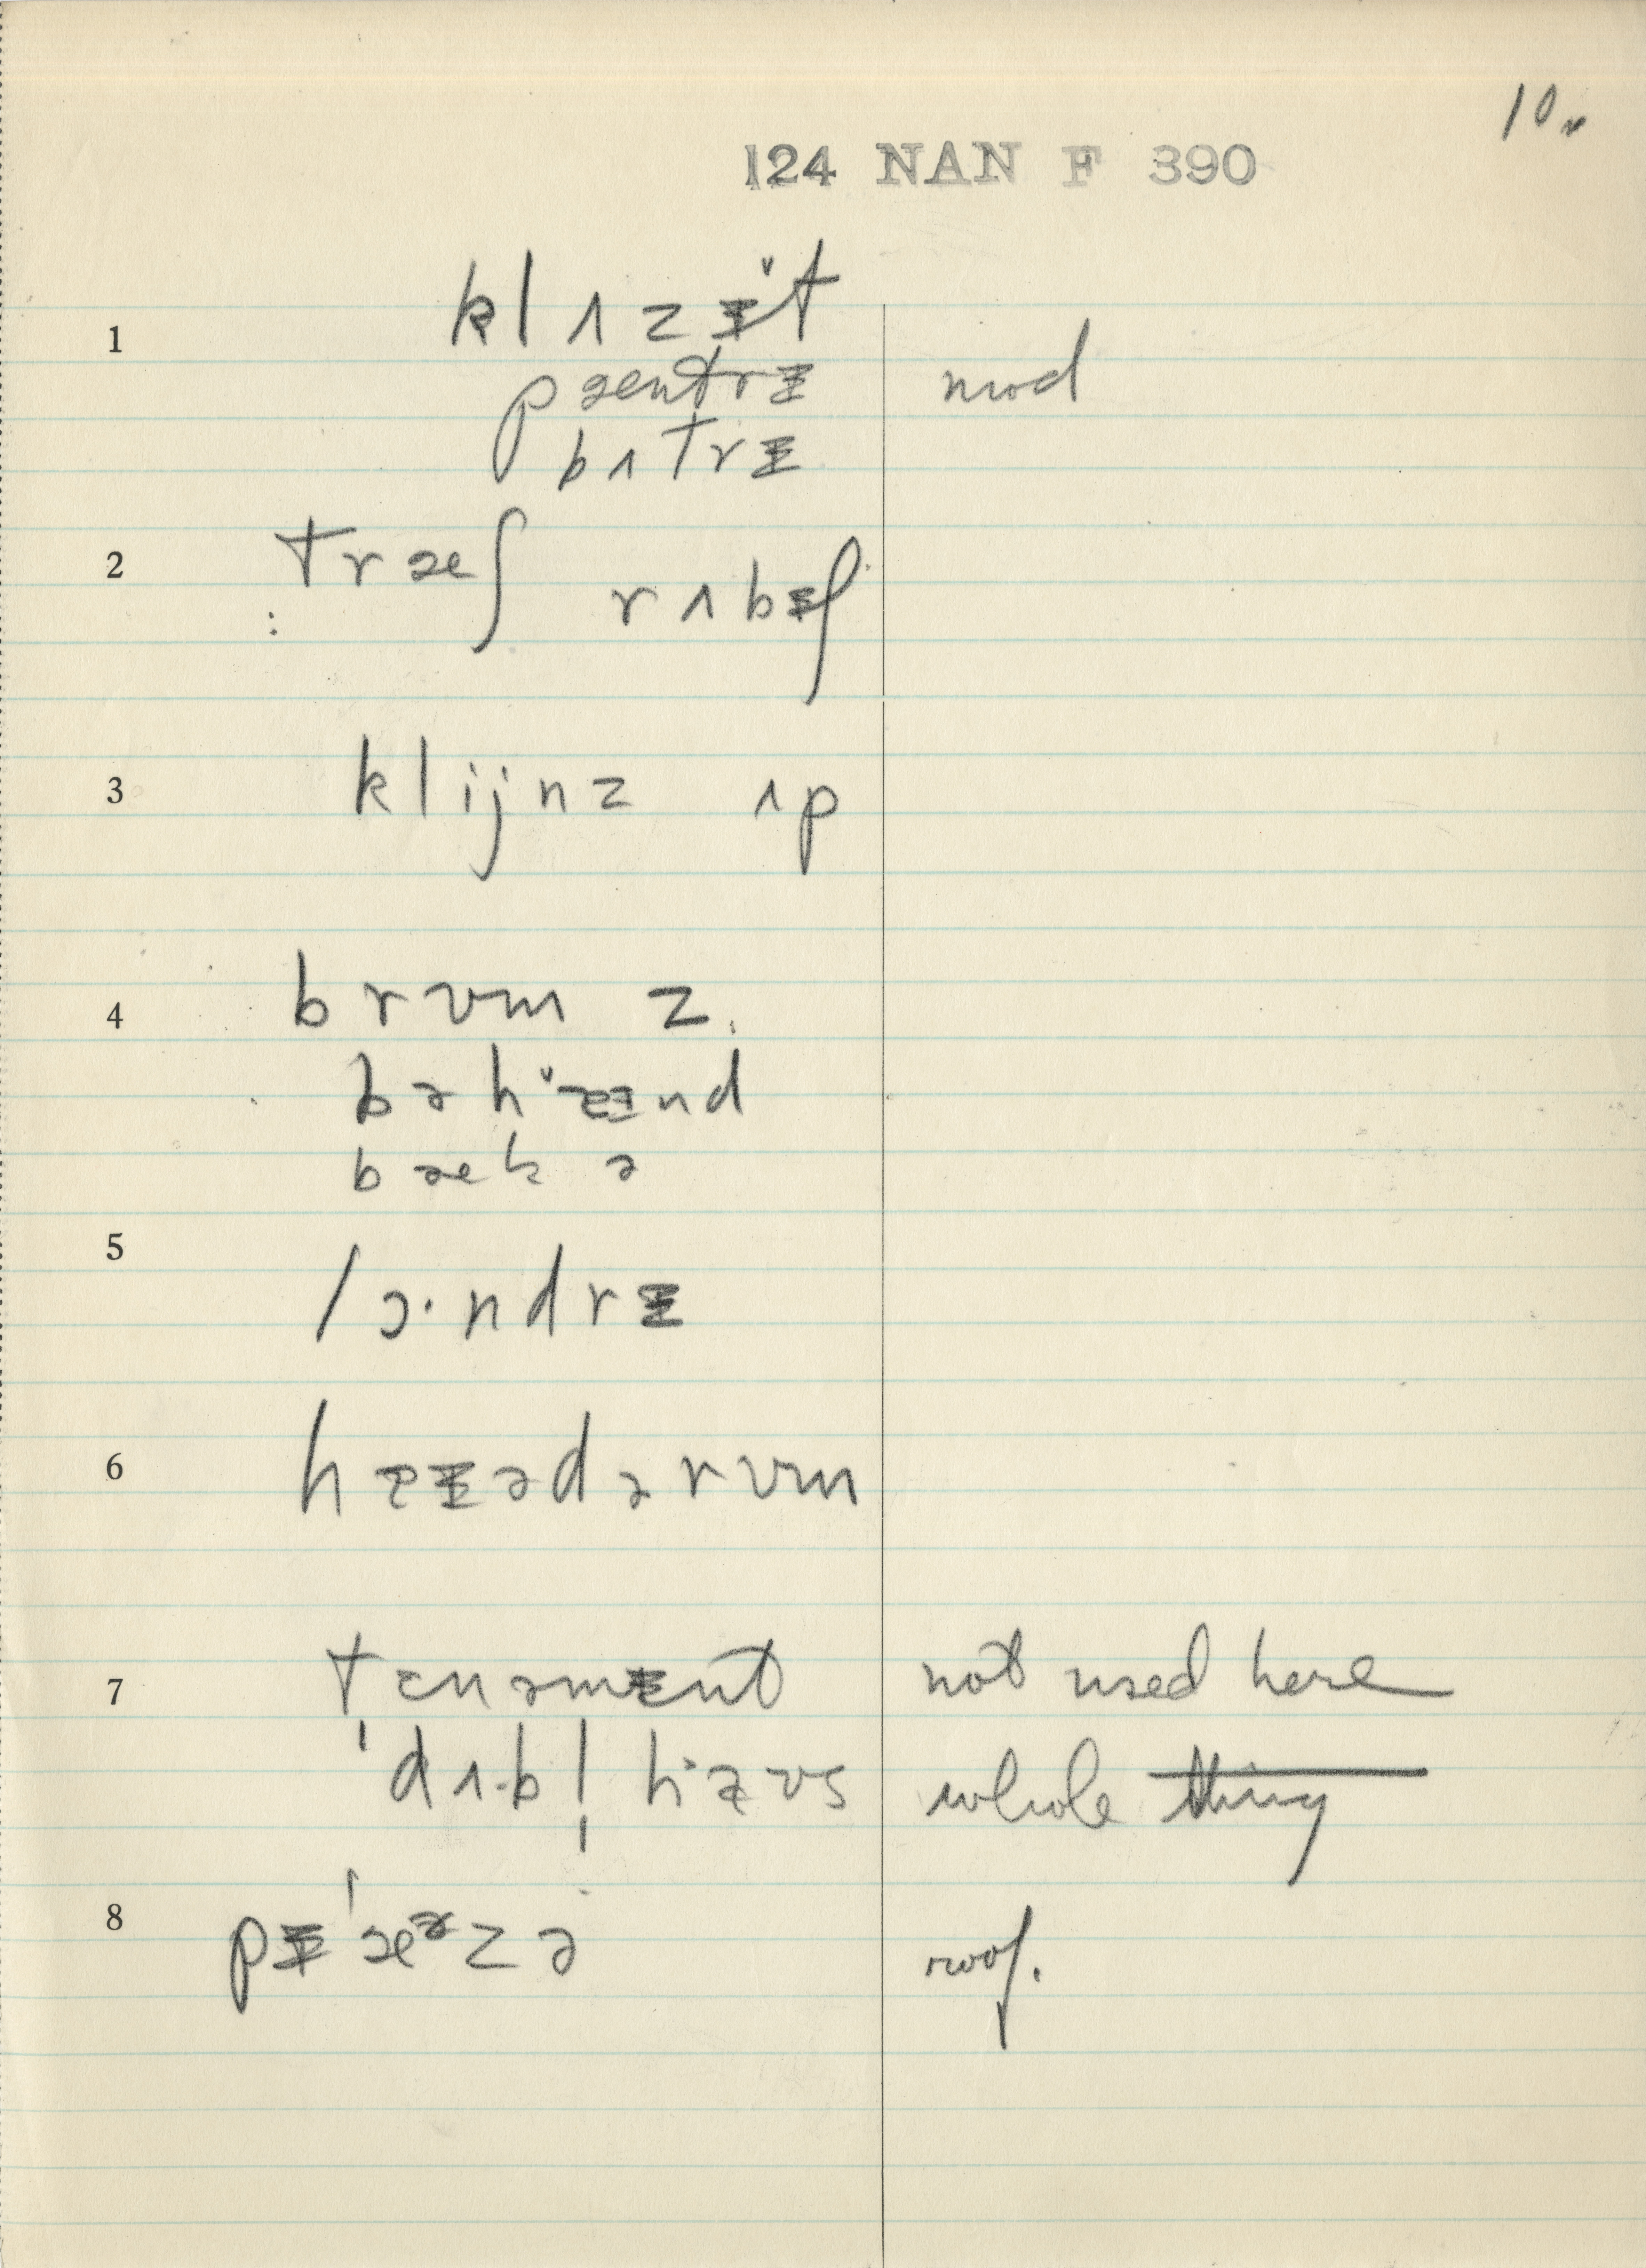 10.
124 NAN F 390
1 klʌzɨ̌t
pæntrɨ mod
bʌtrɨ
2 træʃ rʌbɨʃ
3 klijnz ʌp
4 brʊm z
bəhɐɨnd
bæk ə
5 lɔ·ndrɨ
6 hɐɨədərʊm
7 tɛnəmɛnt not used here
ˈdʌ·bl̩ haʊs whole thing
8 pɨˈæᵊzə roof.